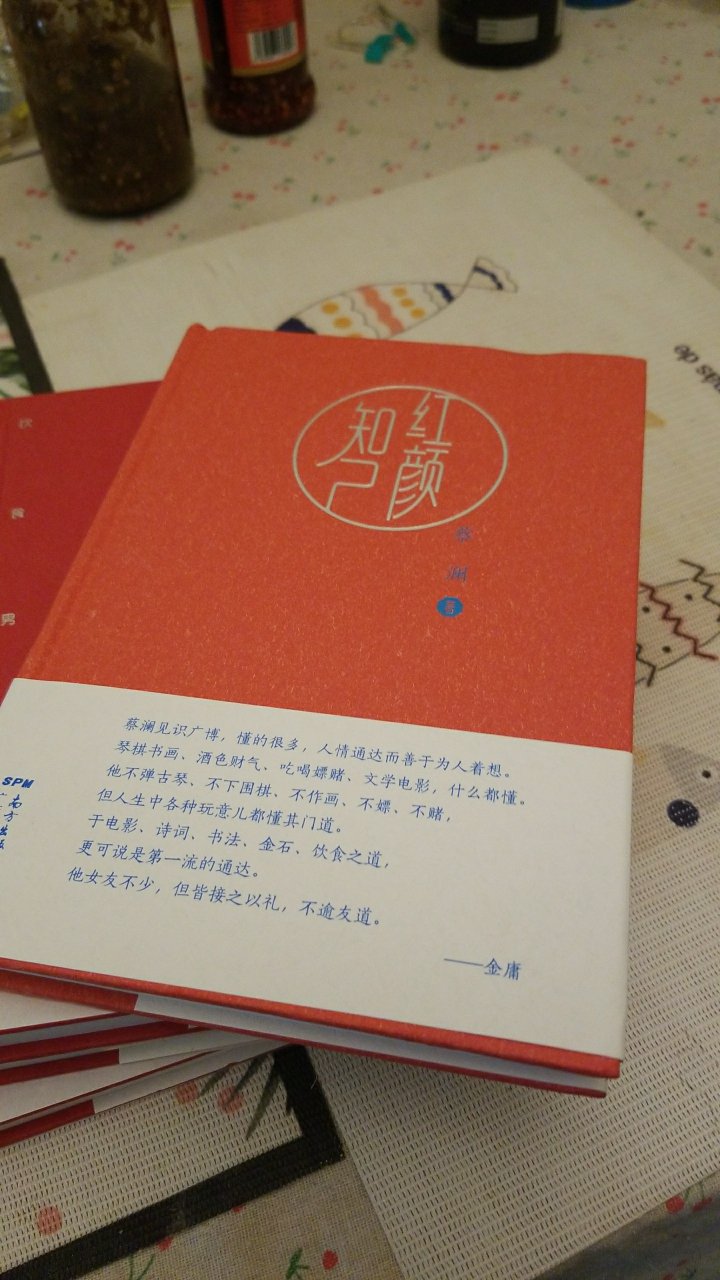 红颜
知己
蔡
澜
著
蔡澜见识广博，懂的很多，人情通达而善于为人着想。
琴棋书画、酒色财气、吃喝嫖赌、文学电影，什么都懂。
他不弹古琴、不下围棋、不作画、不嫖、不赌，
但人生中各种玩意儿都懂其门道。
于电影、诗词、书法、金石、饮食之道，
更可说是第一流的通达。
他女友不少，但皆接之以礼，不逾友道。
——金庸
SPM
南方出版
饮
食
男
ds de